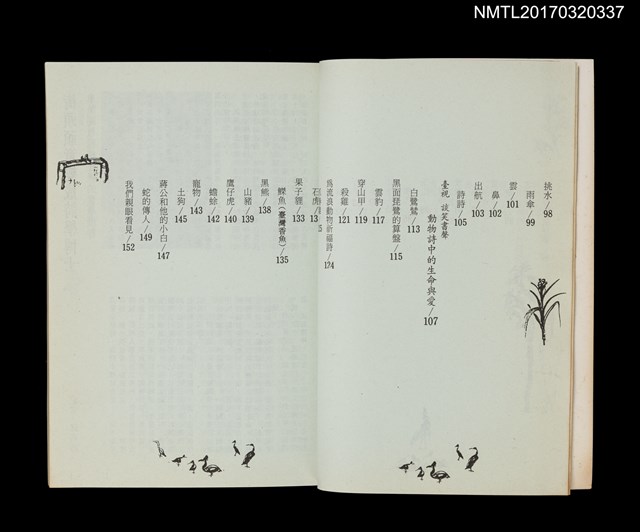 NMTL20170320337
挑水/98
雨傘/99
雲/101
鼻/102
出航/103
詩詩/105
臺視 談笑書聲
動物詩中的生命與愛/107
白鷺鷥/113
黑面琵鷺的算盤/115
雲豹/117
穿山甲/119
殺雞/121
為流浪動物祈福詩/124
石虎
果子貍/133
鰈魚(臺灣香魚)/135
黑熊/138
山豬/139
鷹仔虎/140
蟾蜍/142
寵物/143
土狗/145
蔣公和他的小白/147
蛇的傳人/149
我們親眼看見/152